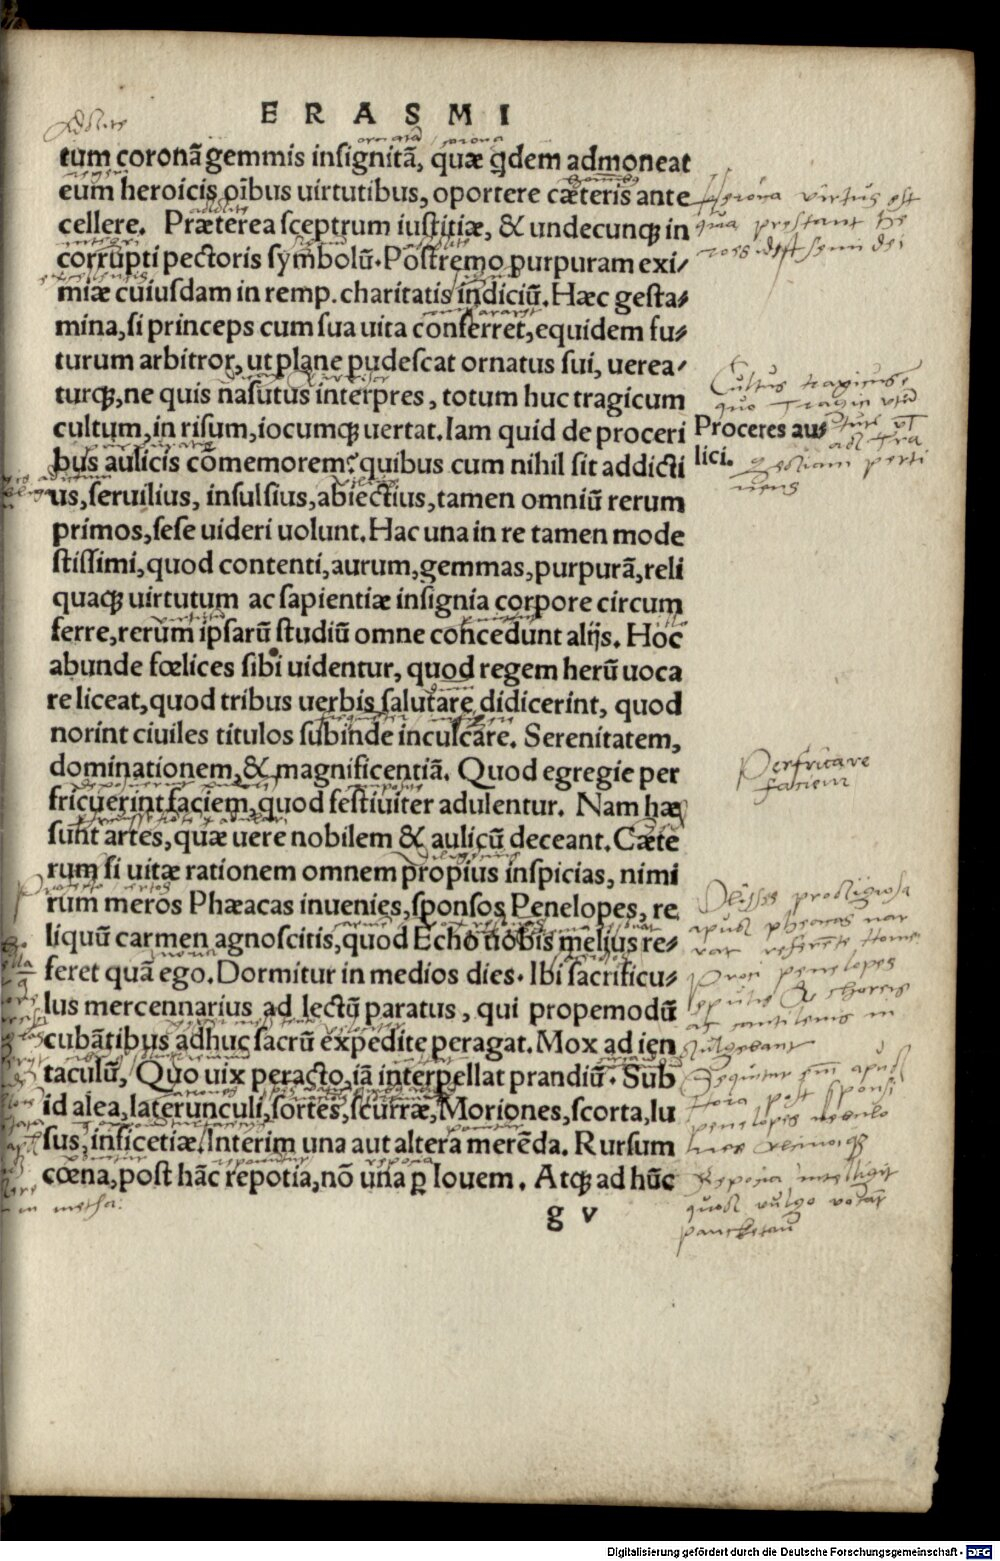 ERASMI
tum coronã gemmis insignitã, quæ qdem admoneat
eum heroicis oĩbus uirtutibus, oportere cæteris ante
cellere. Præterea sceptrum iustitiæ, & undecunqꝫ in
corrupti pectoris symbolũ. Postremo purpuram exi/
miæ cuiusdam in remp. charitatis indiciũ. Hæc gesta/
mina, si princeps cum sua uita conferret, equidem fu/
turum arbitror, ut plane pudescat ornatus sui, uerea/
turqꝫ, ne quis nasutus interpres, totum huc tragicum
cultum, in risum, iocumqꝫ uertat. Iam quid de proceri
bus aulicis cõmemorem? quibus cum nihil sit addicti
us, seruilius, insulsius, abiectius, tamen omniũ rerum
primos, sese uideri uolunt. Hac una in re tamen mode
stissimi, quod contenti, aurum, gemmas, purpurã, reli
quaqꝫ uirtutum ac sapientiæ insignia corpore circum
ferre, rerum ipsarũ studiũ omne concedunt alijs. Hoc
abunde fœlices sibi uidentur, quod regem herũ uoca
re liceat, quod tribus uerbis salutare didicerint, quod
norint ciuiles titulos subinde inculcare. Serenitatem,
dominationem, & magnificentiã. Quod egregie per
fricuerint faciem, quod festiuiter adulentur. Nam hæ
sunt artes, quæ uere nobilem & aulicũ deceant. Cæte
rum si uitæ rationem omnem propius inspicias, nimi
rum meros Phæacas inuenies, sponsos Penelopes, re
liquũ carmen agnoscitis, quod Echo uobis melius re/
feret quã ego. Dormitur in medios dies. Ibi sacrificu/
lus mercennarius ad lectũ paratus, qui propemodũ
cubãtibus adhuc sacrũ expedite peragat. Mox ad ien
taculũ, Quo uix peracto, iã interpellat prandiũ. Sub
id alea, laterunculi, sortes, scurræ, Moriones, scorta, lu
sus, inficetiæ. Interim una aut altera merẽda. Rursum
cœna, post hãc repotia, nõ una ꝑ Iouem. Atqꝫ ad hũc
g v
Heroica virtus est
qua prestant he
roes idest semi dei
Cultus tragicus
quo
Proceres au/
lici.
Perfricare
faciem
Ulisses prodigiosa
apud pheacas nar
rat referente Home
Proci penelopes
epulis & choreis
ac cantilenis in
dulgebant
Sequitur apud
post sponsi
penelopes nebulo
nes Alcinoiqꝫ
Repotia intelligit
quod vulgo vocant
pancketum
Digitalisierung gefördert durch die Deutsche Forschungsgemeinschaft - DFG